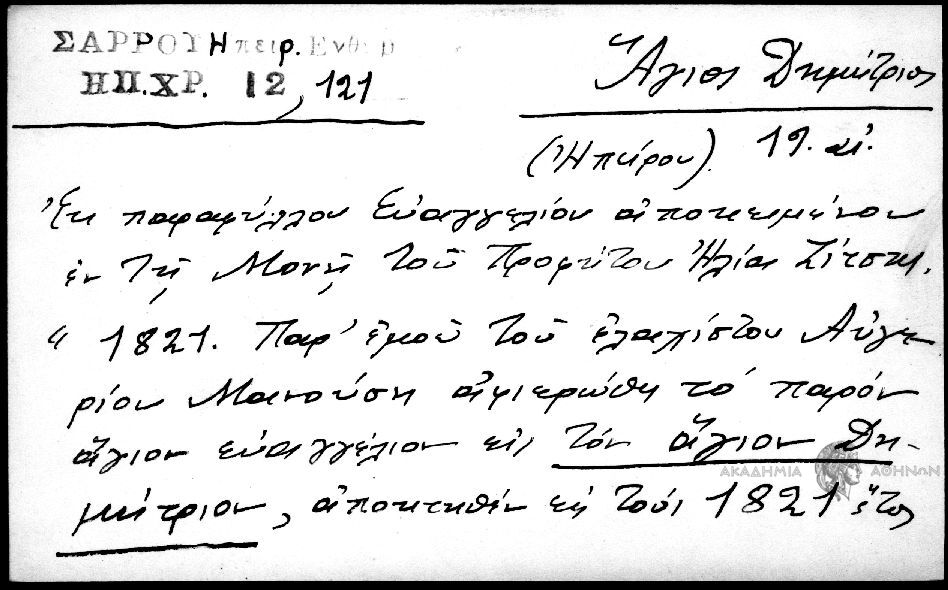 ΣΑΡΡΟΥ Ηπειρ. Ενθυμ
ΗΠ.ΧΡ. 12, 121
Ἅγιος Δημήτριος
(Ἠπείρου) 19. αἰ.
Ἐκ παραφύλλου Εὐαγγελίου ἀποκειμένου
ἐν τῇ Μονῇ τοῦ Προφήτου Ἠλία Ζίτσης.
" 1821. Παρ' ἐμοῦ τοῦ ἐλαχίστου Αὐγε
ρίου Μανούση ἀφιερώθη τό παρόν
ἅγιον εὐαγγέλιον εἰς τόν ἅγιον Δη-
μήτριον, ἀποκτηθέν εἰς τούς 1821 ἔτος
ΑΚΑΔΗΜΙΑ ΑΘΗΝΩΝ